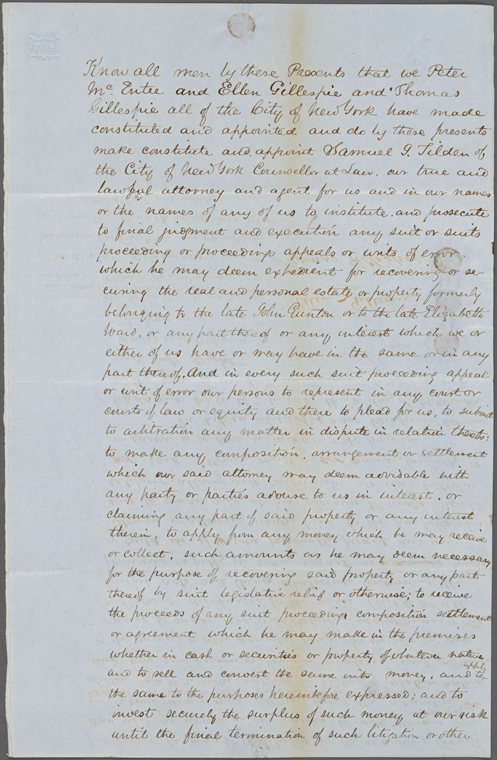 Know all men by these Presents that we Peter
Mc Entee and Ellen Gillespie and Thomas
Gillespie all of the City of New York have made
constituted and appointed and do by these presents
make constitute and appoint Samuel J. Tilden of
the City of New York Counsellor at Law. our true and
lawful attorney and agent for us and in our names
or the names of any of us to institute, and prosecute
to final judgment and execution any suit or suits
proceeding or proceedings appeals or writs of error
which he may deem expedient for recovering or se-
curing the real and personal estate or property formerly
belonging to the late John or to the late Elizabeth
Ward, or any part thereof or any interest which we or
either of us have or may have in the same or in any
part thereof. And in every such suit proceeding appeal
or writ of error our persons to represent in any court or
courts of law or equity and there to plead for us, to submit
to arbitration any matter in dispute in relation thereto;
to make any composition, arrangement or settlement
which our said attorney may deem advisable with
any party or parties adverse to us in interest, or
claiming any part of said property or any interest
therein, to apply from any money which he may receive
or collect, such amounts as he may deem necessary
for the purpose of recovering said property or any part
thereof by suit legislative relief or otherwise; to receive
the proceeds of any suit proceedings composition settlement
or agreement which he may make in the premises
whether in cash or securities or property of whatever nature
and to sell and convert the same into money, and to apply
the same to the purposes hereinbefore expressed; and to
invest securely the surplus of such money at our risk
until the final termination of such litigation or other